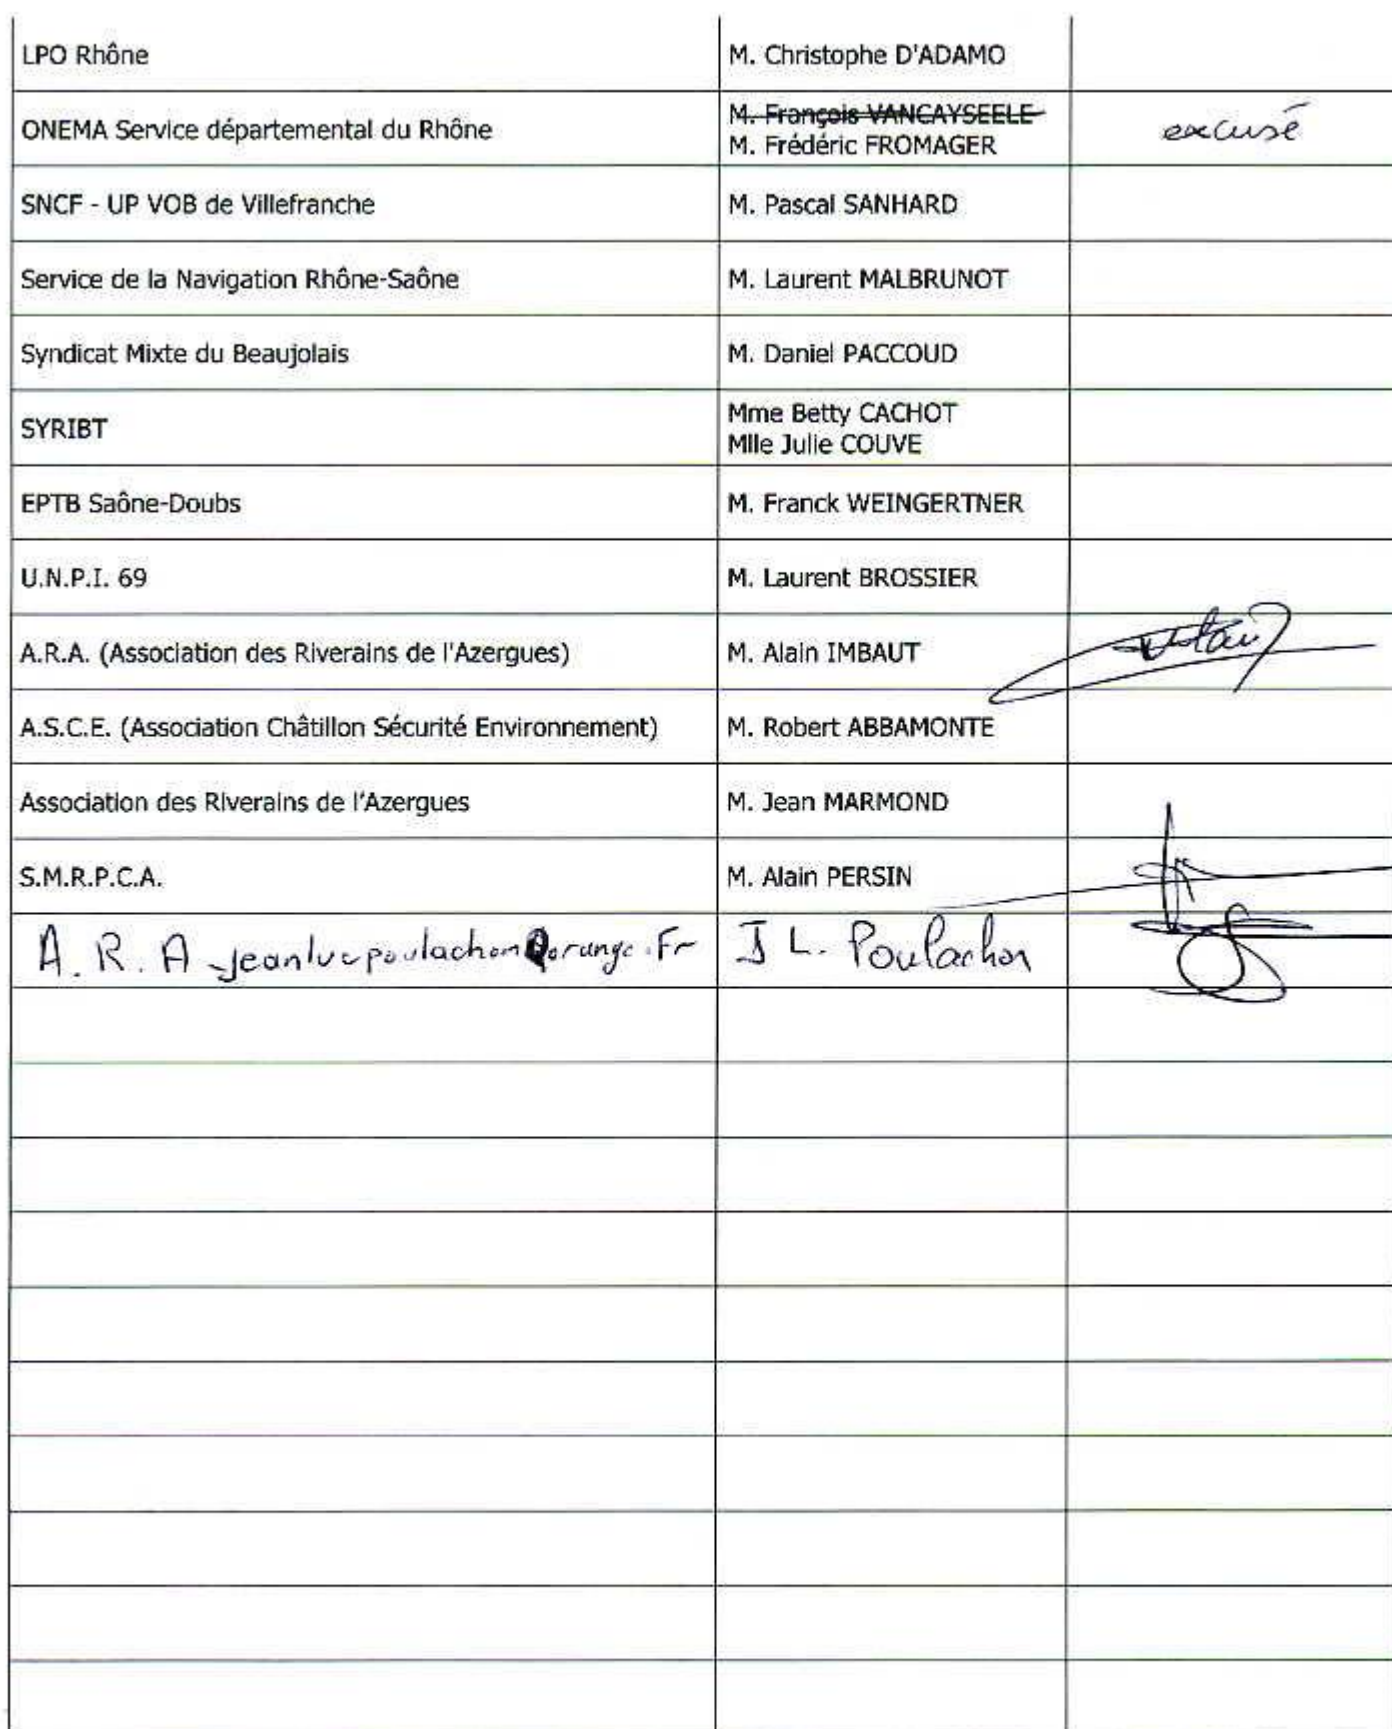 LPO Rhône
M. Christophe D'ADAMO
ONEMA Service départemental du Rhône
M. François VANCAYSEELE
M. Frédéric FROMAGER
excusé
SNCF - UP VOB de Villefranche
M. Pascal SANHARD
Service de la Navigation Rhône-Saône
M. Laurent MALBRUNOT
Syndicat Mixte du Beaujolais
M. Daniel PACCOUD
SYRIBT
Mme Betty CACHOT
Mlle Julie COUVE
EPTB Saône-Doubs
M. Franck WEINGERTNER
U.N.P.I. 69
M. Laurent BROSSIER
A.R.A. (Association des Riverains de l'Azergues)
M. Alain IMBAUT
A.S.C.E. (Association Châtillon Sécurité Environnement)
M. Robert ABBAMONTE
Association des Riverains de l'Azergues
M. Jean MARMOND
S.M.R.P.C.A.
M. Alain PERSIN
A. R. A - jeanlucpoulachon@orange.Fr
J L. Poulachon